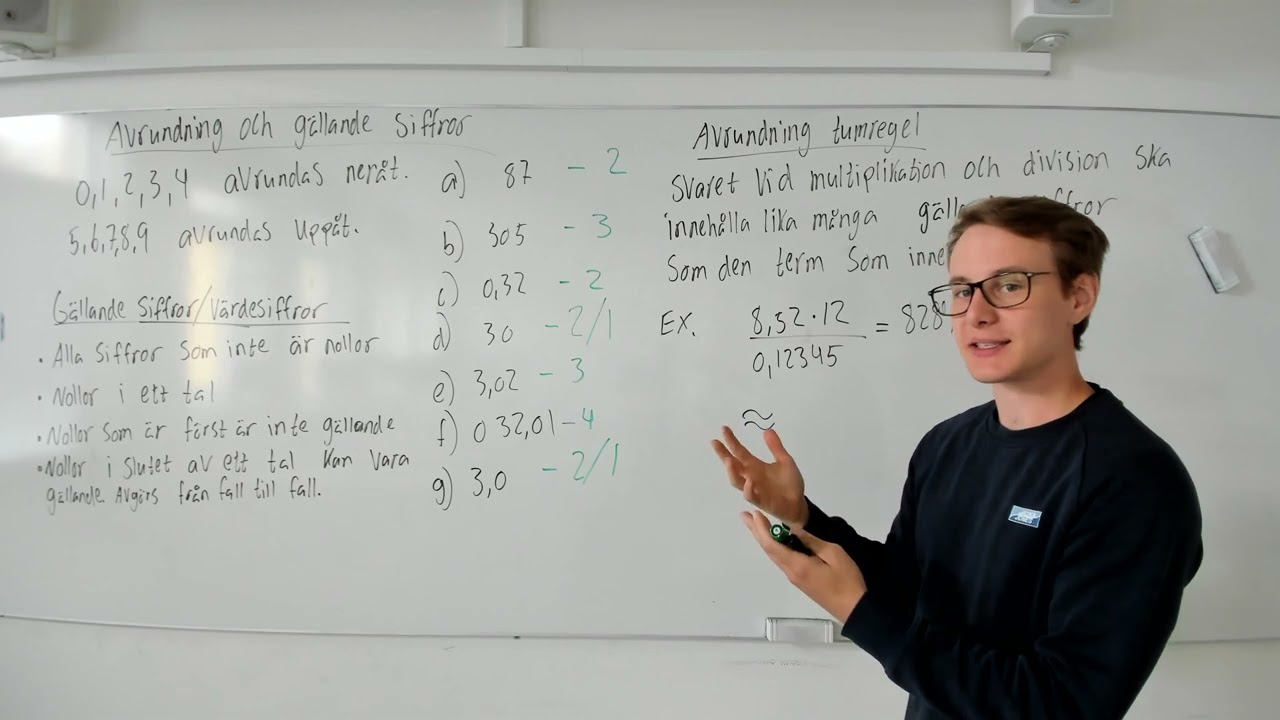 Avrundning och gällande siffror
0,1,2,3,4 avrundas neråt.
5,6,7,8,9 avrundas uppåt.
Gällande siffror/Värdesiffror
• Alla siffror som inte är nollor
• Nollor i ett tal
• Nollor som är först är inte gällande
• Nollor i slutet av ett tal kan vara
gällande. Avgörs från fall till fall.
a) 87 - 2
b) 305 - 3
c) 0,32 - 2
d) 30 - 2/1
e) 3,02 - 3
f) 032,01 - 4
g) 3,0 - 2/1
Avrundning tumregel
Svaret vid multiplikation och division ska
innehålla lika många
som den term som
EX. 8,52·12 / 0,12345 = 828
≈